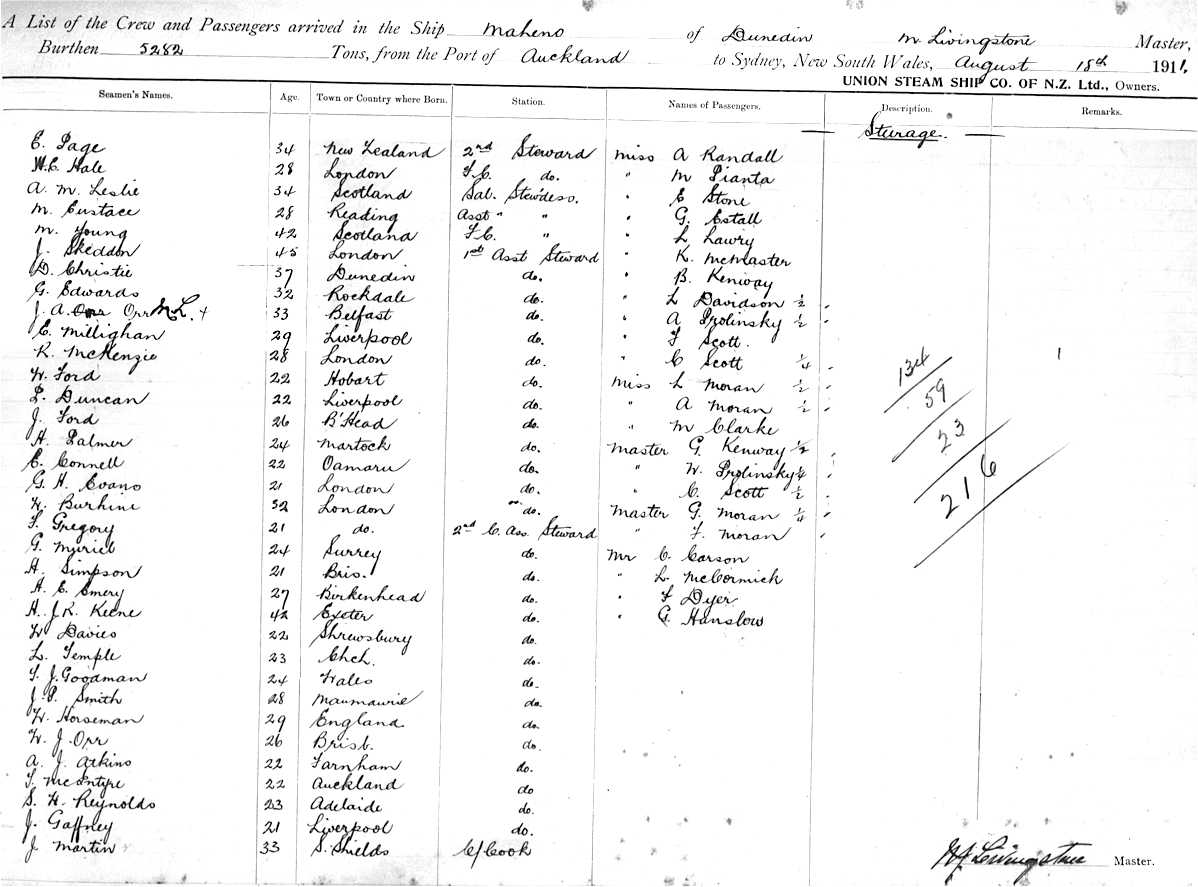 A List of the Crew and Passengers arrived in the Ship Maheno of Dunedin M. Livingstone Master,
Burthen 5282 Tons, from the Port of Auckland to Sydney, New South Wales, August 18th 1911,
UNION STEAM SHIP CO. OF N.Z. Ltd., Owners.
Seamen's Names. Age. Town or Country where Born. Station. Names of Passengers. Description. Remarks.
Sturage.
E. Page 34 New Zealand 2nd Steward Miss A Randall
W.C. Hale 28 London F.C. do. " M Pianta
A. M. Leslie 34 Scotland Sal. Stew'dess. " E Stone
M. Eustace 28 Reading Asst " " " G. Estall
M. Young 42 Scotland F.C. " " L Lawry
J. Skeddon 45 London 1st Asst Steward " K. McMaster
D. Christie 37 Dunedin do. " B. Kenway
G. Edwards 32 Rockdale do. " L Davidson ½
J. A. Orr 33 Belfast do. " A Prolinsky ½
E. Millighan 29 Liverpool do. " F Scott.
R. McKenzie 28 London do. " C Scott ¼
W. Ford 22 Hobart do. Miss L Moran ½ 134
L. Duncan 22 Liverpool do. " A Moran ½ 59
J. Ford 26 B'Head do. " M Clarke
H. Palmer 24 Martock do. Master G. Kenway ½ 23
C. Connell 22 Oamaru do. " W. Prolinsky ¼
G. H. Evans 21 London do. " C. Scott ½ 216
W. Burhine 32 London do. Master G. Moran ¼
F. Gregory 21 do. 2nd C. Ass. Steward " F. Moran
G. Muriel 24 Surrey do. Mr C. Carson
H. Simpson 21 Bris. do. " L. McCormick
A. E. Emery 27 Birkenhead do. " F Dyer
H. J.R. Keene 42 Exeter do. " G. Hanslow
W. Davies 22 Shrewsbury do.
L. Temple 23 Chch. do.
F. J. Goodman 24 Wales do.
J. P. Smith 28 do.
W. Horseman 29 England do.
W. J. Orr 26 Brisb. do.
A. J. Atkins 22 Farnham do.
T. McIntyre 22 Auckland do
S. H. Reynolds 23 Adelaide do.
J. Gaffney 21 Liverpool do.
J Martin 33 S. Shields C/Cook
Livingstone Master.